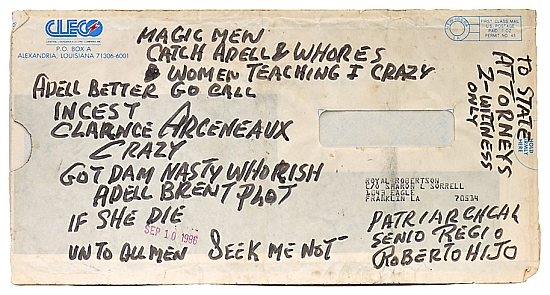 CLECO
P.O. BOX A
ALEXANDRIA, LOUISIANA 71306-6001
FIRST CLASS MAIL
U.S. POSTAGE
PAID 1 OZ
PERMIT NO. 44
MAGIC MEN
CATCH ADELL & WHORES
WOMEN TEACHING I CRAZY
ADELL BETTER GO CALL
INCEST
CLARNCE ARCENEAUX
CRAZY
GOT DAM NASTY WHORISH
ADELL BRENT PLOT
IF SHE DIE
SEP 10 1986
UNTO ALL MEN SEEK ME NOT
TO STATE
ATTORNEYS
2-WITNESS
ONLY
HOLD
HERE
ROYAL ROBERTSON
C/O SHARON L SORRELL
1043 EAGLE
FRANKLIN LA 70534
PATRIARCHCAL
SENIO REGIO
ROBERTO HIJO